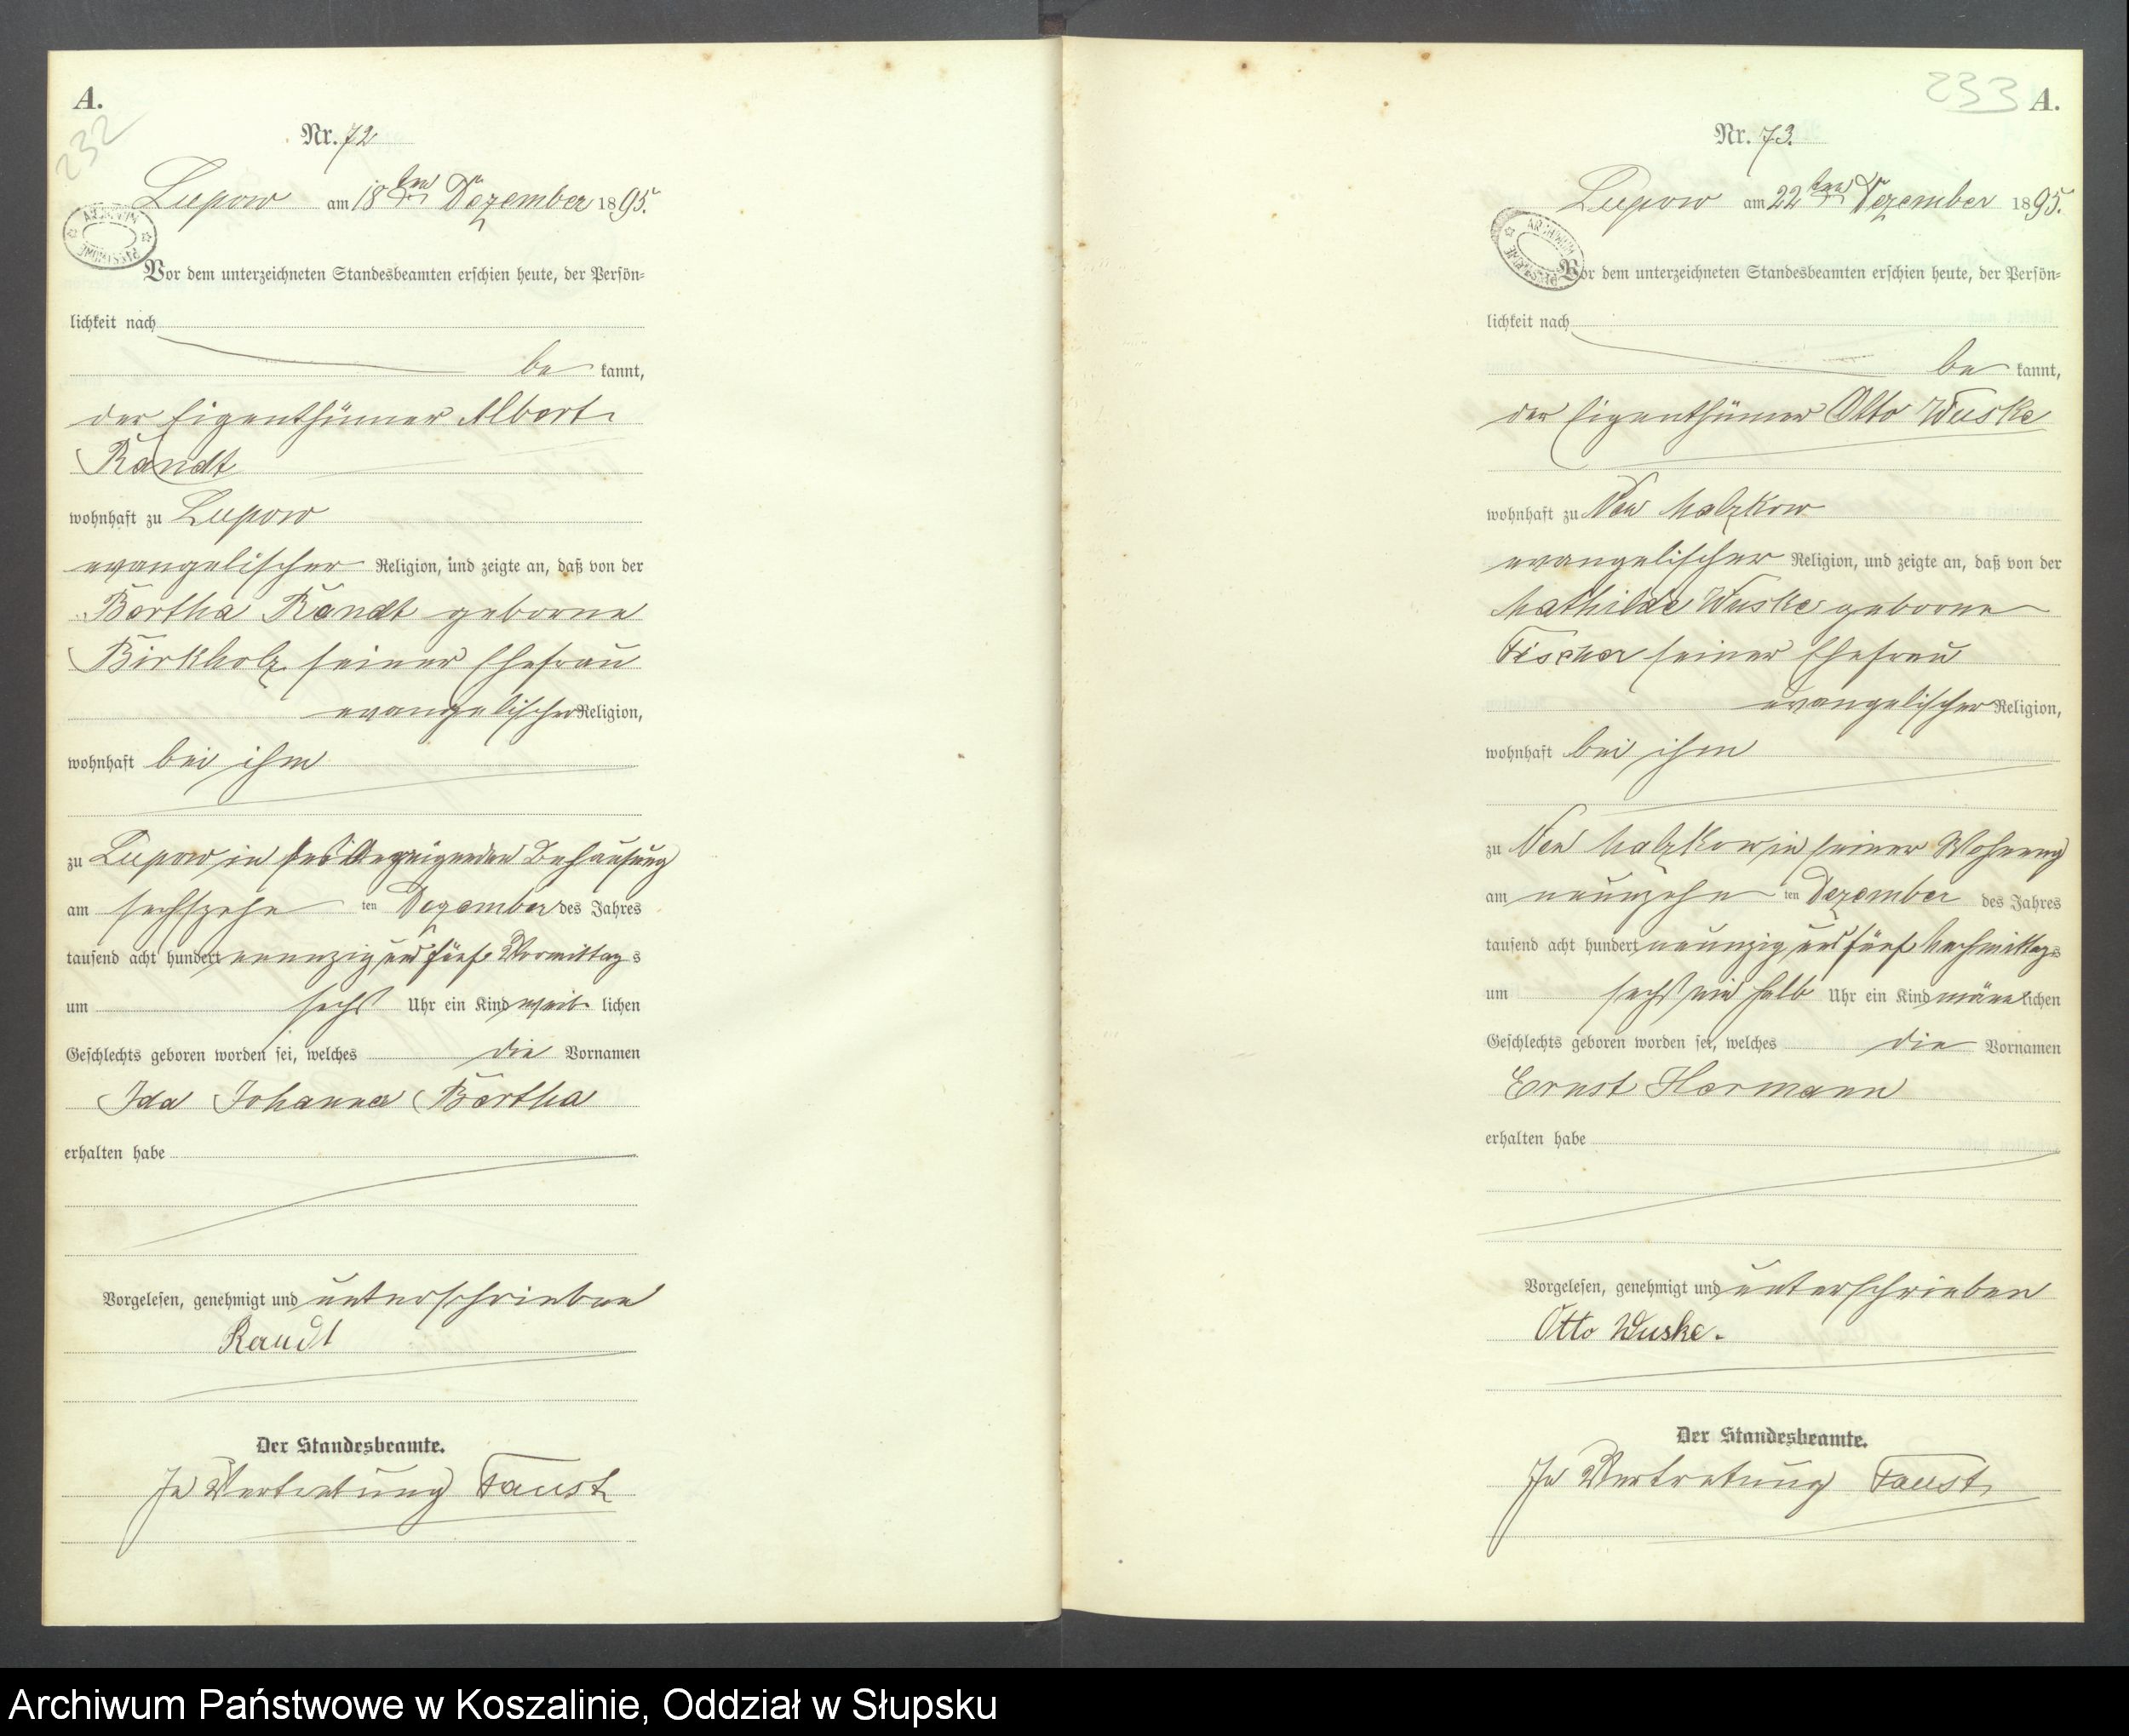 A.
232
Nr. 72
Lupow am 18ten Dezember 1895.
ARCHIWUM PAŃSTWOWE
Vor dem unterzeichneten Standesbeamten erschien heute, der Persön-
lichkeit nach
be kannt,
der Eigenthümer Albert
Randt
wohnhaft zu Lupow
evangelischer Religion, und zeigte an, daß von der
Bertha Randt geborne
Birkholz seiner Ehefrau
evangelischer Religion,
wohnhaft bei ihm
zu Lupow in des Anzeigenden Behausung
am sechszehn ten Dezember des Jahres
tausend acht hundert neunzig und fünf Vormittags
um sechs Uhr ein Kind weib lichen
Geschlechts geboren worden sei, welches die Vornamen
Ida Johanna Bertha
erhalten habe
Vorgelesen, genehmigt und unterschrieben
Randt
Der Standesbeamte.
In Vertretung Faust
233 A.
Nr. 73.
Lupow am 22ten Dezember 1895.
ARCHIWUM PAŃSTWOWE
Vor dem unterzeichneten Standesbeamten erschien heute, der Persön-
lichkeit nach
be kannt,
der Eigenthümer Otto Wuske
wohnhaft zu Neu Malzkow
evangelischer Religion, und zeigte an, daß von der
Mathilde Wuske geborne
Fischer seiner Ehefrau
evangelischer Religion,
wohnhaft bei ihm
zu Neu Malzkow in seiner Wohnung
am neunzehn ten Dezember des Jahres
tausend acht hundert neunzig und fünf Nachmittags
um sechs ein halb Uhr ein Kind männ lichen
Geschlechts geboren worden sei, welches die Vornamen
Ernst Hermann
erhalten habe
Vorgelesen, genehmigt und unterschrieben
Otto Wuske.
Der Standesbeamte.
In Vertretung Faust
Archiwum Państwowe w Koszalinie, Oddział w Słupsku